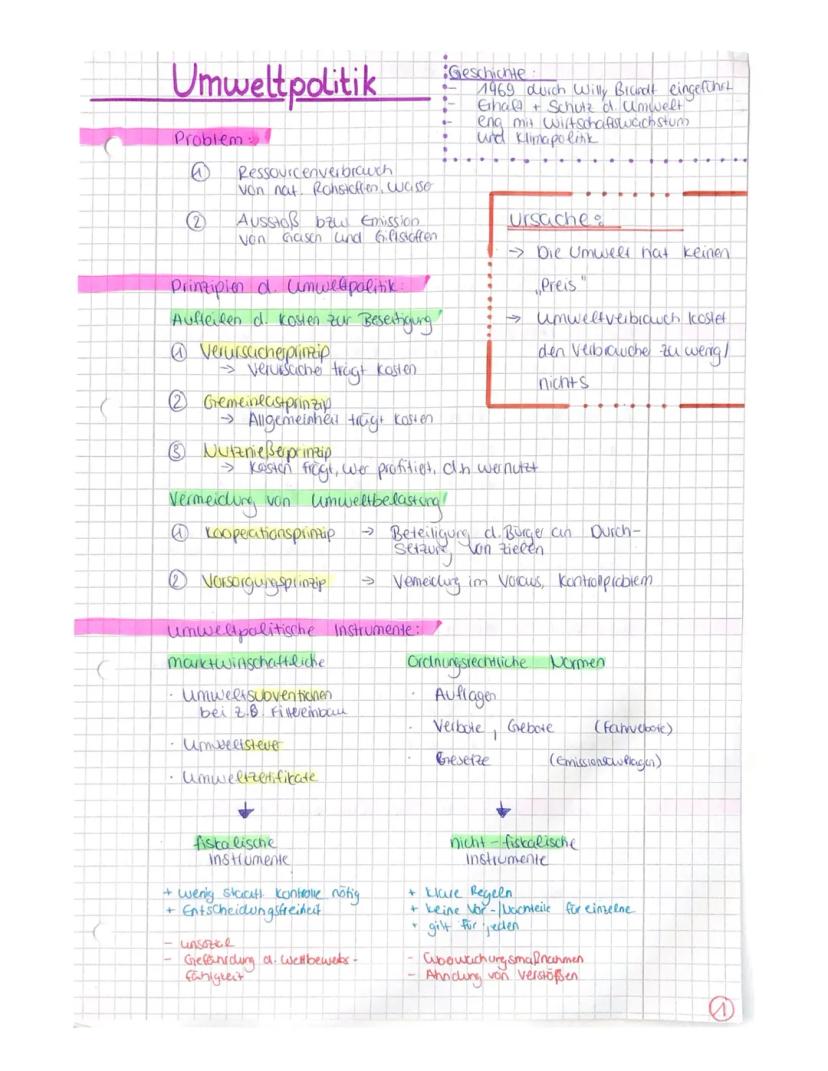 Umweltpolitik
Geschichte:
- 1969 durch Willy Brandt eingeführt
- Erhalt + Schutz d. Umwelt
- eng mit Wirtschaftswachstum
und Klimapolitik
Problem:
① Ressourcenverbrauch
von nat. Rohstoffen, Wasser
② Ausstoß bzw Emission
von Gasen und Giftstoffen
Ursache:
→ Die Umwelt hat keinen
„Preis"
→ Umweltverbrauch kostet
den Verbraucher zu wenig/
nichts
Prinzipien d. Umweltpolitik:
Aufteilen d. Kosten zur Beseitigung
① Verursacherprinzip
→ Verursacher trägt Kosten
② Gemeinlastprinzip
→ Allgemeinheit trägt Kosten
③ Nutznießerprinzip
→ Kosten trägt, wer profitiert, d.h wer nutzt
Vermeidung von Umweltbelastung
① Kooperationsprinzip → Beteiligung d. Bürger an Durch-
setzung von Zielen
② Vorsorgungsprinzip → Vermeidung im Voraus, Kontrollproblem
Umweltpolitische Instrumente:
marktwirtschaftliche
· Umweltsubventionen
bei z.B. Filtereinbau
· Umweltsteuer
· Umweltzertifikate
fiskalische
Instrumente
+ wenig staatl. Kontrolle nötig
+ Entscheidungsfreiheit
- unsozial
- Gefährdung d. Wettbewerbs-
fähigkeit
Ordnungsrechtliche Normen
· Auflagen
· Verbote, Gebote (Fahrverbote)
· Gesetze (Emissionsauflagen)
nicht-fiskalische
Instrumente
+ klare Regeln
+ keine Vor-/Nachteile für einzelne
+ gilt für jeden
- Überwachungsmaßnahmen
- Ahndung von Verstößen
①